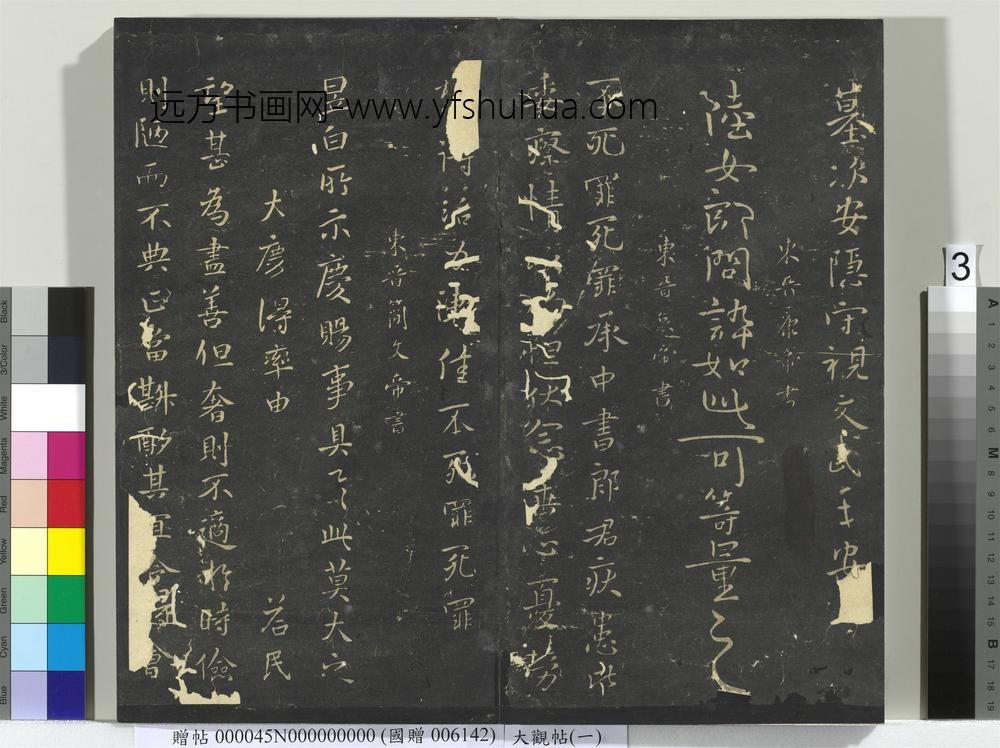 墓次安隱守視文武年安
東晉康帝書
陸女郎問訴如此可等量之
東晉哀帝書
不死罪死罪承中書郎君疾患此
喪察情 想伏念 憂勞
得諸治力 佳不死罪死罪
東晉簡文帝書
昱白所示慶賜事具之此莫大之
大慶 得率由 若民
望甚為盡善但奢則不適於時儉
則陋而不典正當斟酌其宜令
远方书画网 www.yfshuhua.com
贈帖 000045N000000000 (國贈 006142) 大觀帖(一)
3
Black
3/Color
White
Magenta
Red
Yellow
Green
Cyan
Blue
A
1
2
3
4
5
6
M
8
9
10
11
12
13
14
15
B
17
18
19